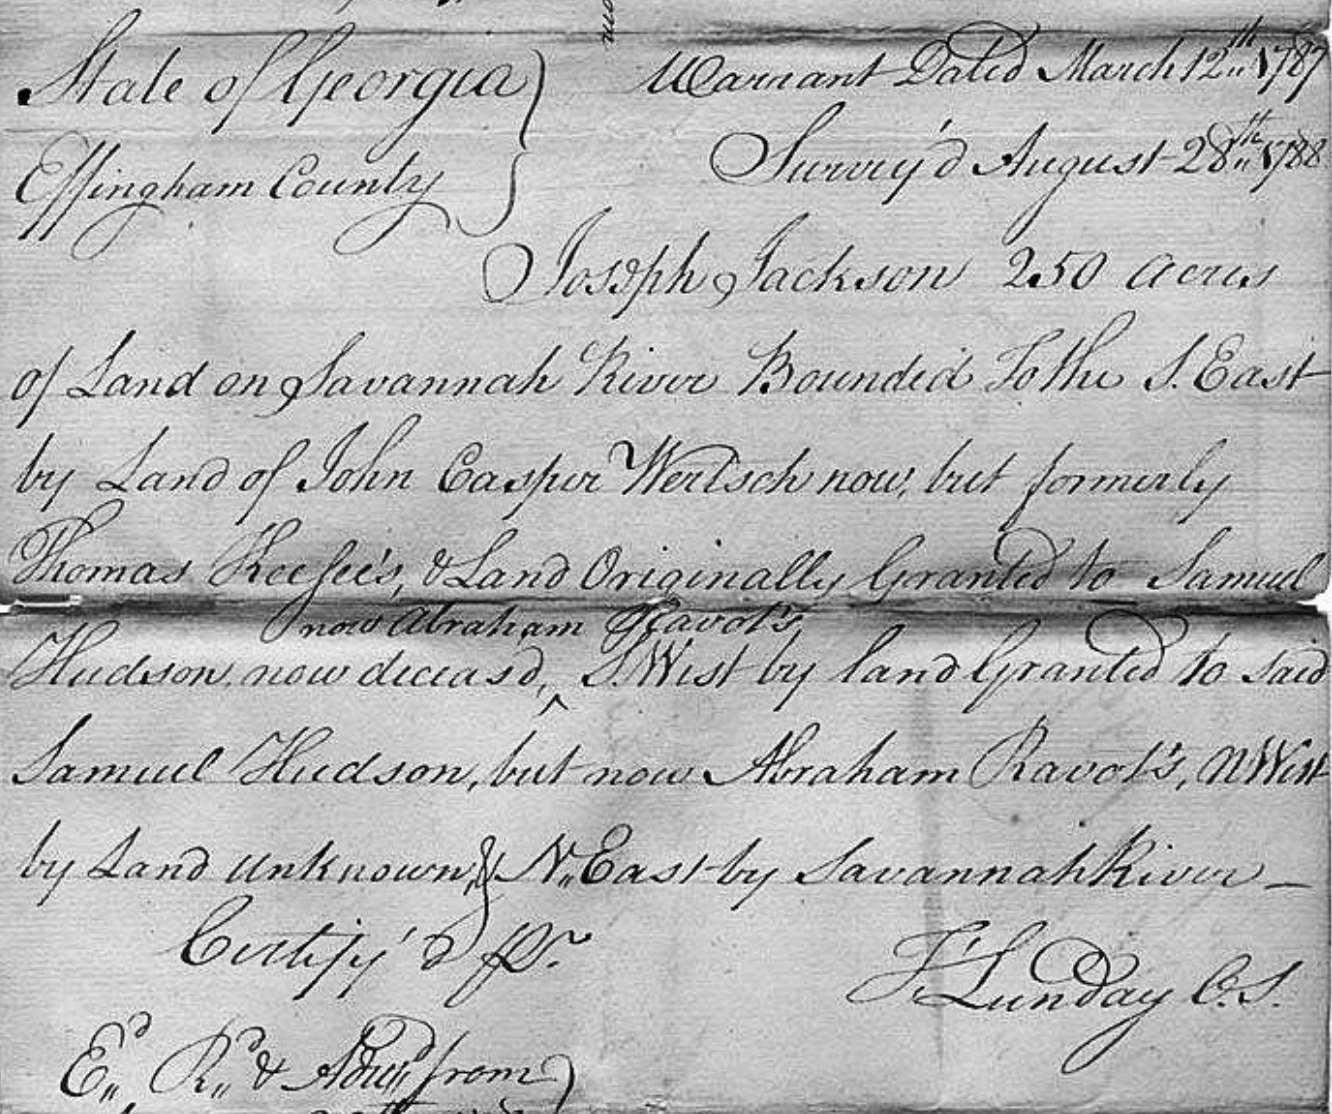 State of Georgia } Warrant Dated March 12th 1787
Effingham County } Survey'd August 28th 1788
Joseph Jackson 250 acres
of Land on Savannah River Bounded To the S. East
by Land of John Casper Wertsch now, but formerly
Thomas Keefee's, & Land Originally Granted to Samuel
now Abraham Ravot's
Hudson, now deceasd, ^ S. West by land Granted to said
Samuel Hudson, but now Abraham Ravot's, N West
by Land unknown, & N. East by Savannah River –
Certify'd Pr.
F. Lunday C. S.
Ed Rd & from